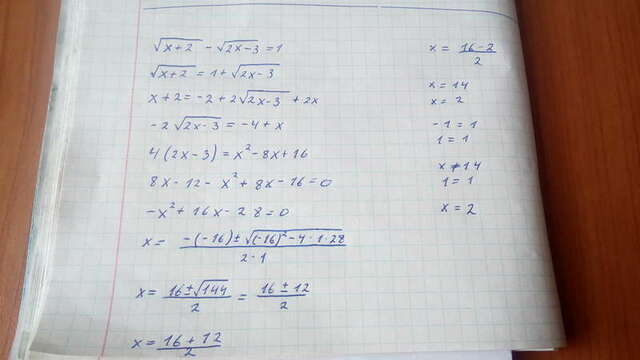 √(x+2) - √(2x-3) = 1
√(x+2) = 1 + √(2x-3)
x+2 = -2 + 2√(2x-3) + 2x
-2√(2x-3) = -4 + x
4(2x-3) = x² - 8x + 16
8x - 12 - x² + 8x - 16 = 0
-x² + 16x - 28 = 0
x = (-(-16) ± √((-16)² - 4·1·28)) / (2·1)
x = (16 ± √144) / 2 = (16 ± 12) / 2
x = (16 + 12) / 2
x = (16 - 2) / 2
x = 14
x = 2
-1 = 1
1 = 1
x ≠ 14
1 = 1
x = 2